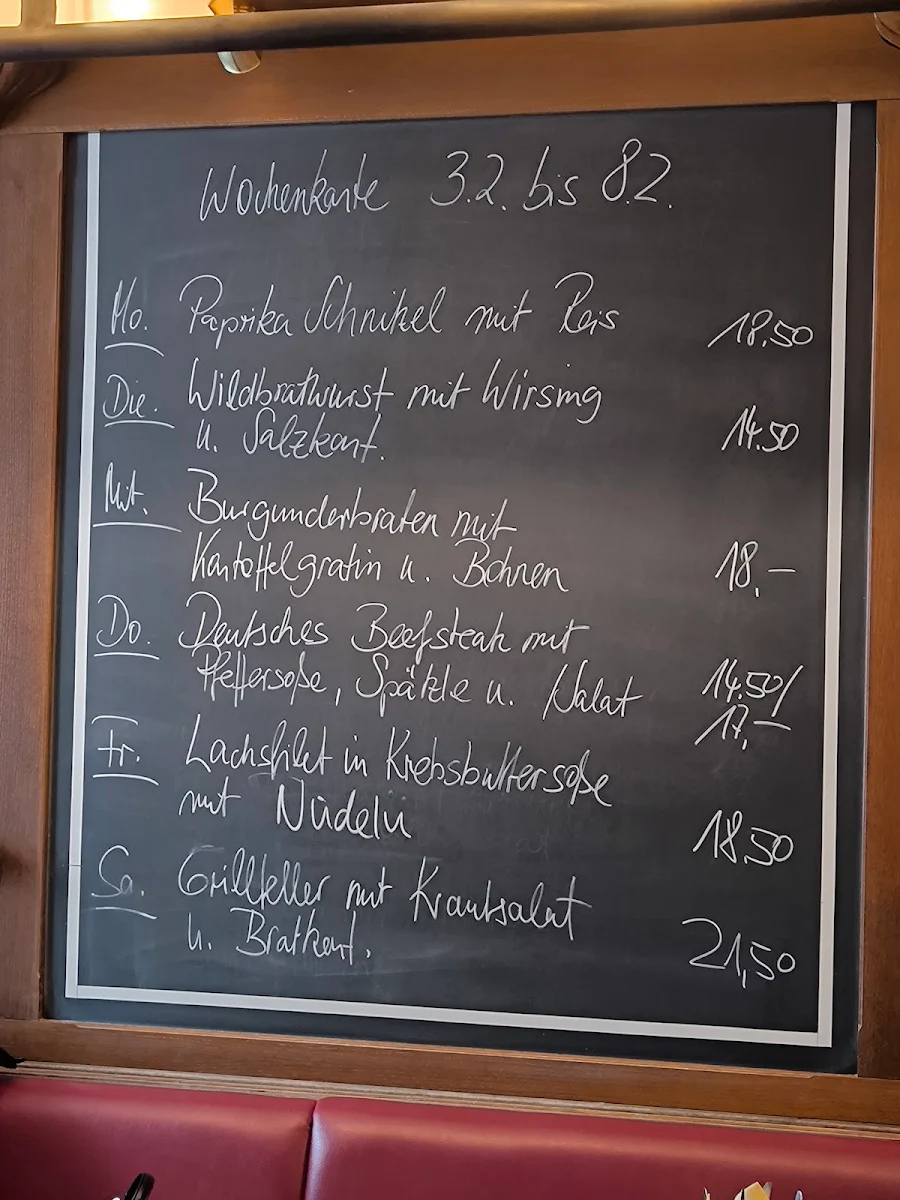 Wochenkarte 3.2. bis 8.2.
Mo. Paprika Schnitzel mit Reis 18,50
Die. Wildbratwurst mit Wirsing
u. Salzkart. 14.50
Mit. Burgunderbraten mit
Kartoffelgratin u. Bohnen 18,–
Do. Deutsches Beefsteak mit
Pfeffersoße, Spätzle u. Salat 14.50/
17,–
Fr. Lachsfilet in Krebsbuttersoße
mit Nudeln 18.50
Sa. Grillteller mit Krautsalat
u. Bratkart. 21,50